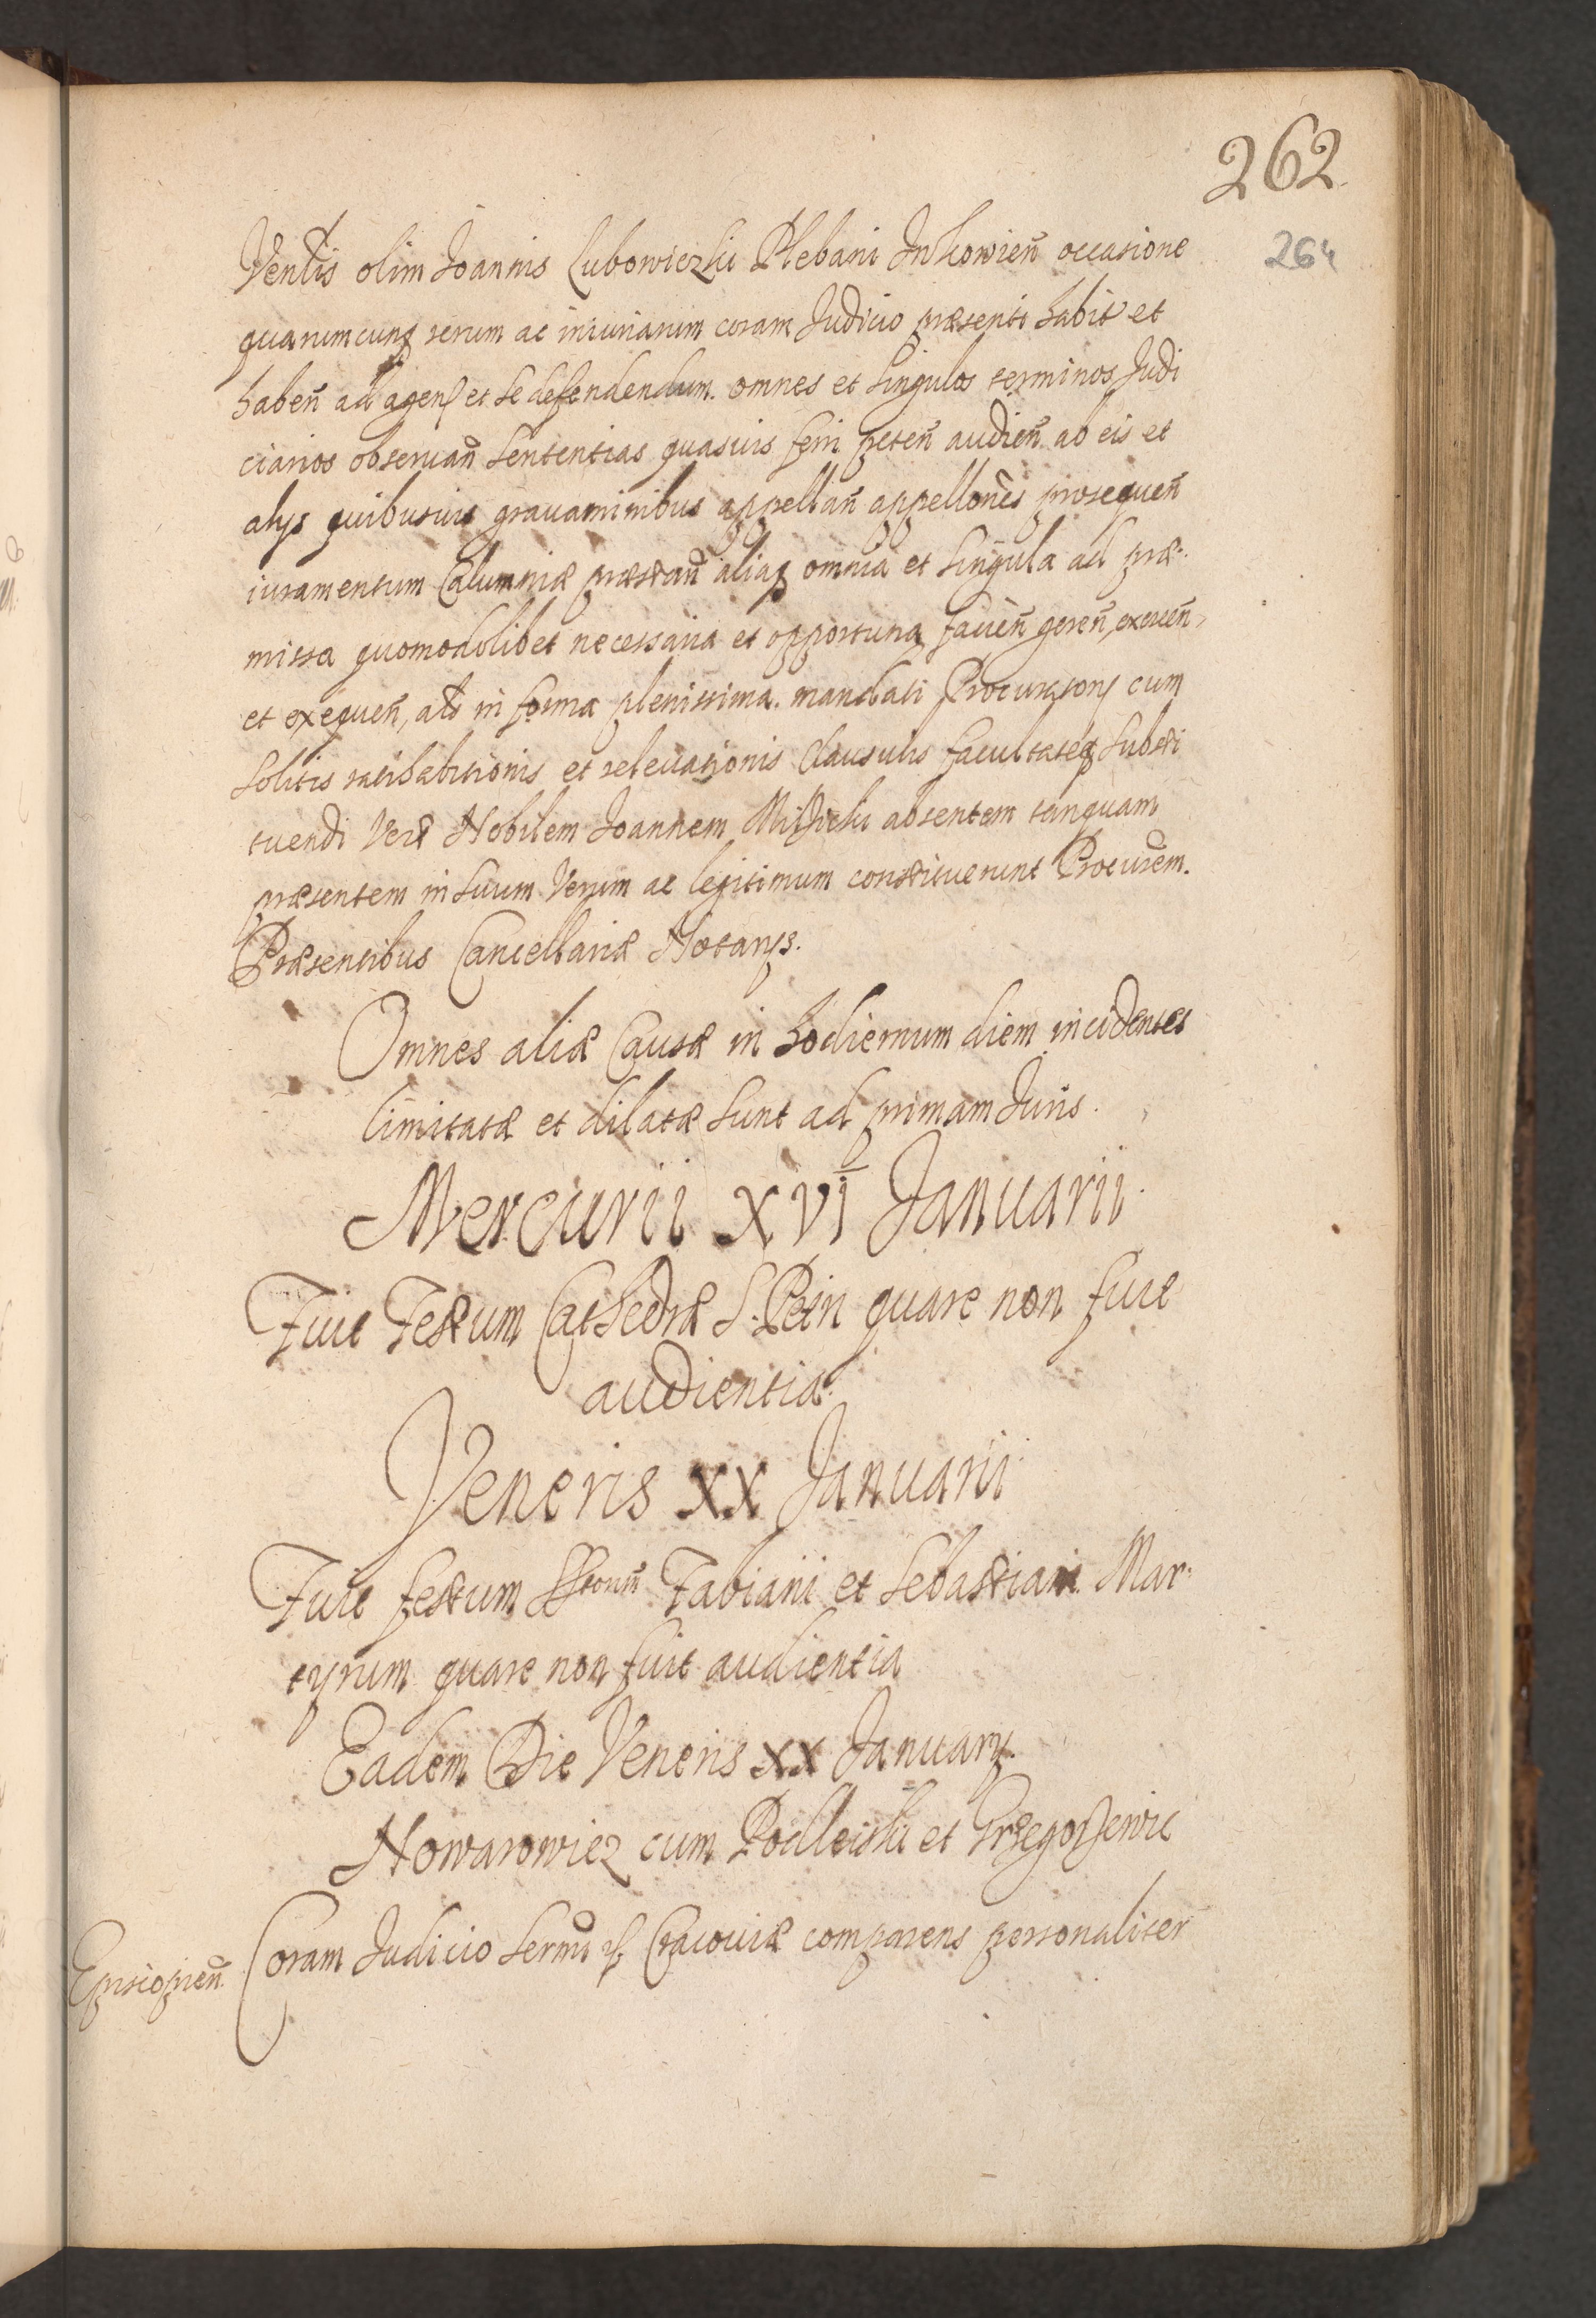 262
264
Ventis olim Joannis Lubowiezki Plebani Inkowień occasione
quarumcunq rerum ac iniuriarum coram Judicio præsenti habit et
habeñ ad agenđ et se defendendum omnes et singulos terminos Judi
ciarios obseruañ sententias quasuis ferri peteñ audieñ ab eis et
alijs quibusuis grauaminibus appellañ appellones prosequeñ
iuramentum Calumniæ præstañ aliaq omnia et singula ad præ
missa quomodolibet necessaria et opportuna facieñ gereñ exerceñ
et exequeñ, als in forma plenissima mandati Procuratorij cum
solitis ratihabitionis et releuationis clausulis facultateq substi
tuendi Vers Nobilem Joannem absentem tanquam
præsentem in suum Verum ac legitimum constituerunt Procurem.
Præsentibus Cancellariæ Notarijs.
Omnes aliæ Causæ in hodiernum diem incidentes
limitatæ et dilatæ sunt ad primam Juris.
Mercurii XVI Januarii
Fuit Festum Cathedræ S. Petri quare non fuit
audientia.
Veneris XX Januarii
Fuit festum SSctorum Fabiani et Sebastiani Mar
tyrum quare non fuit audientia
Eadem Die Veneris XX Januarij.
Nowarowicz cum Podleiski et Grzegorzewic
Episcopieñ. Coram Judicio Cracouiæ comparens personaliter